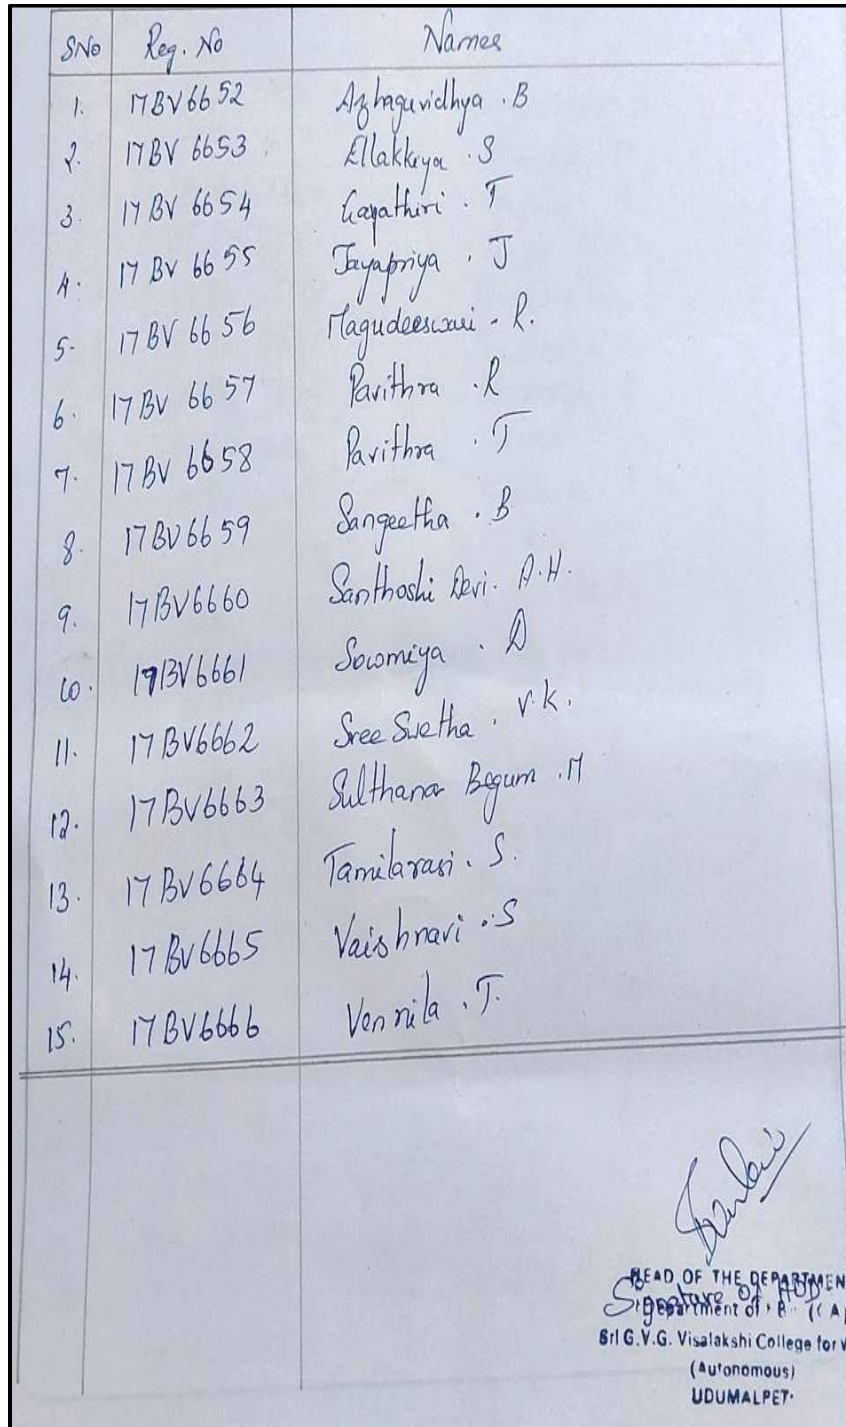 SNo Reg. No Names
1. 17BV6652 Azhaguvidhya . B
2. 17BV 6653 Ellakkiya . S
3. 17BV 6654 Gayathiri . T
4. 17 BV 6655 Jayapriya . J
5. 17BV 6656 Magudeeswari . R.
6. 17BV 6657 Pavithra . R
7. 17BV 6658 Pavithra . T
8. 17BV6659 Sangeetha . B
9. 17BV6660 Santhoshi Devi. A.H.
10. 17BV6661 Sowmiya . D
11. 17BV6662 Sree Swetha . V.K.
12. 17BV6663 Sulthana Begum .M
13. 17BV6664 Tamilarasi . S.
14. 17BV6665 Vaishnavi . S
15. 17BV6666 Vennila . T.
HEAD OF THE DEPARTMEN
Signature of HOD
Department of B
Sri G.V.G. Visalakshi College for
(Autonomous)
UDUMALPET.